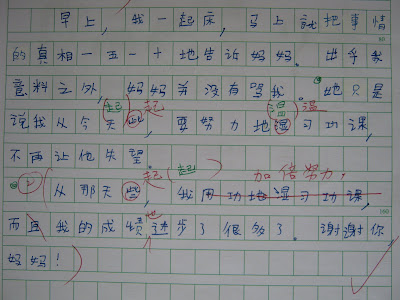 早上，我一起床，马上就把事情
的真相一五一十地告诉妈妈。出乎我
意料之外，妈妈并没有骂我。她只是
说我从今天些起，要努力地湿习功课，
起 温 温
不再让他失望。
起（起） 加倍努力，
从那天些，我用功地湿习功课，
而且我的成绩进步了很多了。谢谢你
也
妈妈！